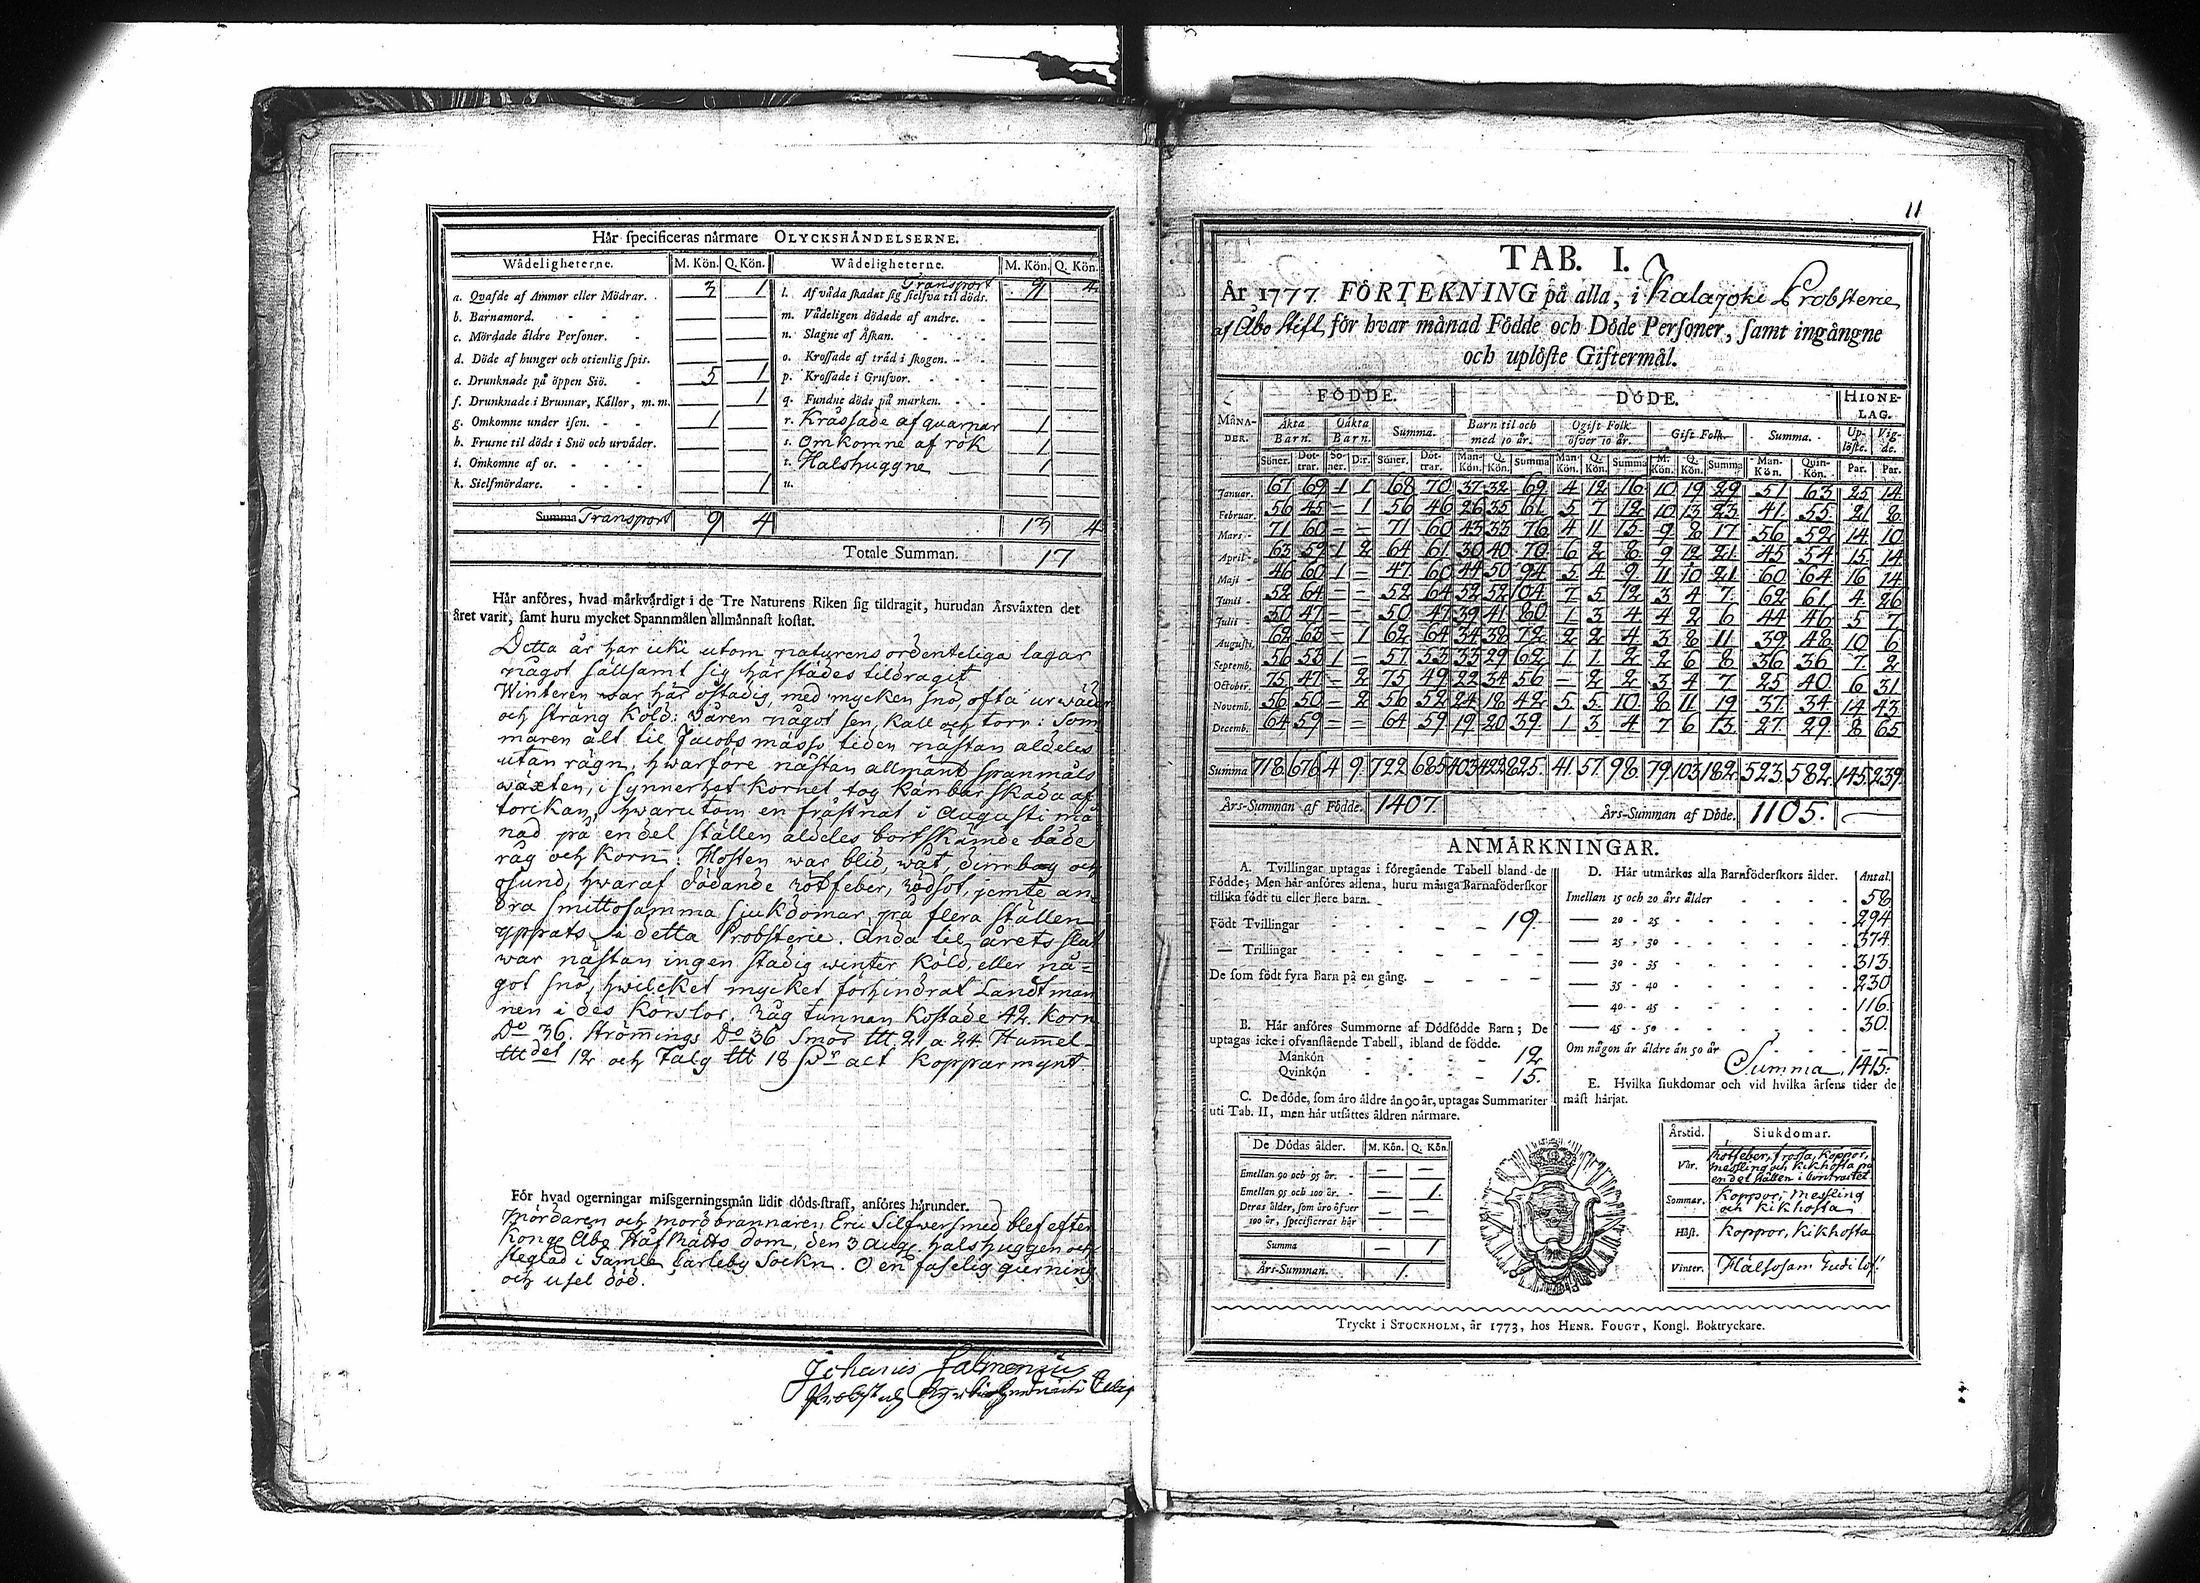 Här specificeras närmare OLYCKSHÄNDELSERNE.
Wådeligheterne. M. Kön. Q. Kön. Wådeligheterne. M. Kön. Q. Kön.
a. Qvafde af Ammor eller Mödrar. 3 1 Transport 9 4
l. Af våda skadat sig sielfva til döds.
b. Barnamord. — — m. Vådeligen dödade af andre. — —
c. Mördade äldre Personer. — — n. Slagne af Åskan. — —
d. Döde af hunger och otienlig spis. — — o. Krossade af träd i skogen. — —
e. Drunknade på öppen Siö. 5 1 p. Krossade i Grufvor. — —
f. Drunknade i Brunnar, Källor, m. m. — 1 q. Fundne döde på marken. — —
g. Omkomne under isen. 1 — r. Kråssade af quarnar 1 —
h. Frusne til döds i Snö och urväder. — — s. Omkomne af rök 1 —
i. Omkomne af os. — — t. Halshuggne — 1 —
k. Sielfmördare. — 1 u.
Summa Transport 9 4 13 4
Totale Summan. 17
Här anföres, hvad märkvärdigt i de Tre Naturens Riken sig tildragit, hurudan Årsväxten det
året varit, samt huru mycket Spannmålen allmännast kostat.
Detta år har icke utom naturens ordenteliga lagar
något sällsamt sig härstädes tildragit.
Winteren war här ostadig, med mycken snö, ofta urwäder
och sträng köld: Våren något sen, kall och torr: Som-
maren alt til Jacobs mässo tiden nästan aldeles
utan rägn, hwarföre nästan allmänt spanmåls
wäxten, i synnerhet kornet tog känbar skada af
torckan, hwarutom en fråstnat i Augusti må-
nad på en del ställen aldeles bortskämde både
råg och korn: Hösten war blid, wåt, dimbog och
osund, hwaraf dödande rötfeber, rödsot, jemte an-
dra smittosamma sjukdomar, på flera ställen
yppats i detta Probsterie. Ända til årets slut
war nästan ingen stadig winter köld, eller nå-
got snö, hwilcket mycket förhindrat Landtman-
nen i des körslor. Råg tunnan kostade 42. Korn
Do 36. Strömings Do 36 Smör ttt 21 a 24 Hummel-
ttt det 12 och Talg ttt 18 Dr alt koppar mynt.
För hvad ogerningar missgerningsmän lidit döds-straff, anföres härunder.
Mördaren och mordbrännaren Eric Silfwersmed blef efter
Kongl. Åbo Håf Rätts dom, den 3 Aug. halshuggen och
steglad i Gamle Carleby Sockn. O en faselig gierning
och usel död.
Johannes Salmenius
11
TAB. I.
År 1777. FÖRTEKNING på alla, i Kalajoki Probsterie
af Åbo Stift, för hvar månad Födde och Döde Personer, samt ingångne
och uplöste Giftermål.
MÅNA-DER. FÖDDE. DÖDE. HIONE-LAG.
Äkta Barn. Oäkta Barn. Summa. Barn til och med 10 år. Ogift Folk öfver 10 år. Gift Folk. Summa. Up-löste. Vig-de.
Söner. Döt-trar. Sö-ner. D:r. Söner. Döt-trar. Man-Kön. Q. Kön. Summa Man-Kön. Q. Kön. Summa M. Kön. Q. Kön. Summa Man-Kön. Quin-Kön. Par. Par.
Januar. 67 69 1 1 68 70 37 32 69 4 12 16 10 19 29 51 63 25 14
Februar. 56 45 — 1 56 46 26 35 61 5 7 12 10 13 23 41 55 21 8
Mars. 71 60 — — 71 60 43 33 76 4 11 15 9 8 17 56 52 14 10
April. 63 59 1 2 64 61 30 40 70 6 2 8 9 12 21 45 54 15 14
Maji 46 60 1 — 47 60 44 50 94 5 4 9 11 10 21 60 64 16 14
Junii 52 64 — — 52 64 52 52 104 7 5 12 3 4 7 62 61 4 26
Julii 50 47 — — 50 47 39 41 80 1 3 4 4 2 6 44 46 5 7
Augusti. 62 63 — 1 62 64 34 38 72 2 2 4 3 8 11 39 48 10 6
Septemb. 56 53 1 — 57 53 33 29 62 1 1 2 2 6 8 36 36 7 2
October. 75 47 — 2 75 49 22 34 56 — 2 2 3 4 7 25 40 6 31
Novemb. 56 50 — 2 56 52 24 18 42 5 5 10 8 11 19 37 34 14 43
Decemb. 64 59 — — 64 59 19 20 39 1 3 4 7 6 13 27 29 8 65
Summa 718 676 4 9 722 685 403 422 825 41 57 98 79 103 182 523 582 145 239
Års-Summan af Födde. 1407. Års-Summan af Döde. 1105.
ANMÄRKNINGAR.
A. Tvillingar uptagas i föregående Tabell bland de
Födde; Men här anföres allena, huru många Barnaföderskor
tillika födt tu eller flere barn.
Födt Tvillingar 19.
— Trillingar — —
De som födt fyra Barn på en gång. — —
B. Här anföres Summorne af Dödfödde Barn; De
uptagas icke i ofvanstående Tabell, ibland de födde.
Mankön 12
Qvinkön 15.
C. De döde, som äro äldre än 90 år, uptagas Summariter
uti Tab. II, men här utsättes åldren närmare.
De Dödas ålder. M. Kön. Q. Kön.
Emellan 90 och 95 år. — —
Emellan 95 och 100 år. — 1.
Deras ålder, som äro öfver
100 år, specificeras här — —
Summa — 1
Års-Summan. 1.
D. Här utmärkes alla Barnföderskors ålder. Antal.
Imellan 15 och 20 års ålder 58
— 20 - 25 294
— 25 - 30 374
— 30 - 35 313
— 35 - 40 230
— 40 - 45 116
— 45 - 50 30
Om någon är äldre än 50 år — —
Summa 1415.
E. Hvilka siukdomar och vid hvilka årsens tider de
mäst härjat.
Årstid. Siukdomar.
Vår. Rötfeber, frossa, koppor,
messling och kikhosta på
en del ställen i Contractet
Sommar. Koppor, messling
och kikhosta
Höst. Koppor, kikhosta
Vinter. Hälsosam Gudi lof!
Tryckt i STOCKHOLM, år 1773, hos HENR. FOUGT, Kongl. Boktryckare.